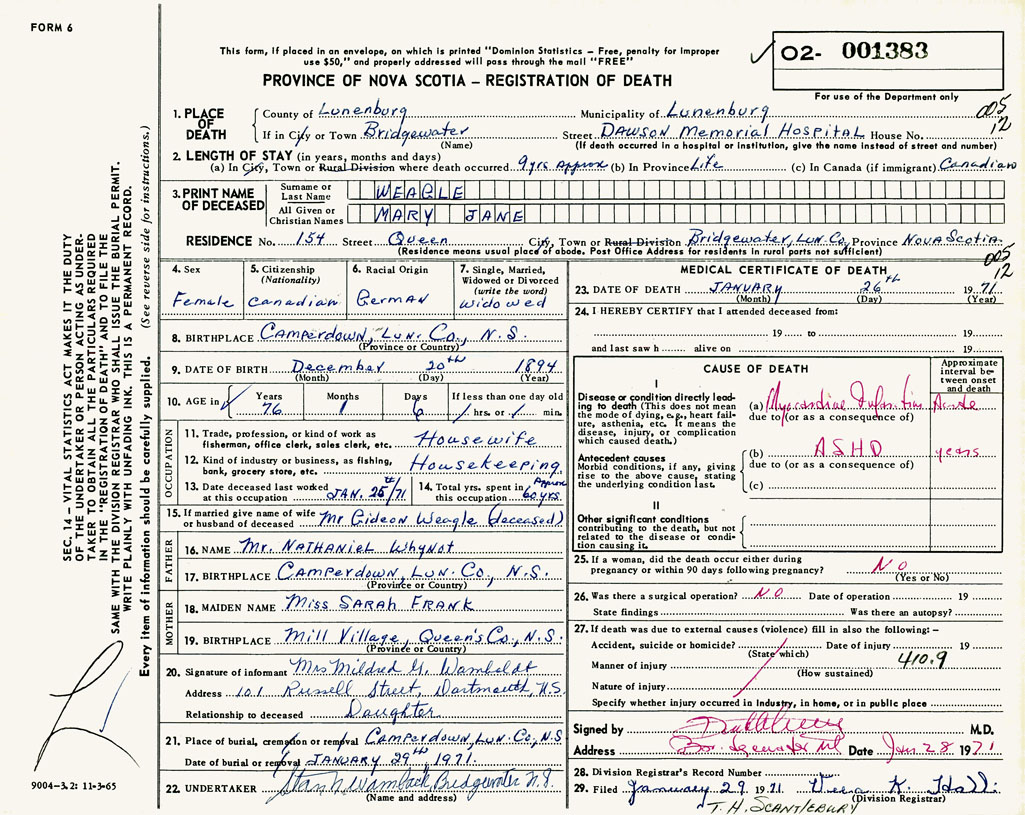 FORM 6
This form, if placed in an envelope, on which is printed "Dominion Statistics – Free, penalty for improper
use $50," and properly addressed will pass through the mail "FREE"
PROVINCE OF NOVA SCOTIA – REGISTRATION OF DEATH
O2- 001383
For use of the Department only
005
12
SEC. 14 – VITAL STATISTICS ACT MAKES IT THE DUTY
OF THE UNDERTAKER OR PERSON ACTING AS UNDER-
TAKER TO OBTAIN ALL THE PARTICULARS REQUIRED
IN THE "REGISTRATION OF DEATH" AND TO FILE THE
SAME WITH THE DIVISION REGISTRAR WHO SHALL ISSUE THE BURIAL PERMIT.
WRITE PLAINLY WITH UNFADING INK. THIS IS A PERMANENT RECORD.
Every item of information should be carefully supplied. (See reverse side for instructions.)
1. PLACE OF DEATH County of Lunenburg Municipality of Lunenburg
If in City or Town Bridgewater Street DAWSON Memorial HOSPITAL House No.
(Name) (If death occurred in a hospital or institution, give the name instead of street and number)
2. LENGTH OF STAY (in years, months and days)
(a) In City, Town or Rural Division where death occurred 9 yrs Approx (b) In Province Life (c) In Canada (if immigrant) Canadian
3. PRINT NAME OF DECEASED Surname or Last Name WEAGLE
All Given or Christian Names MARY JANE
RESIDENCE No. 154 Street Queen City, Town or Rural Division Bridgewater, Lun. Co. Province NOVA SCOTIA
(Residence means usual place of abode. Post Office Address for residents in rural parts not sufficient)
005
12
4. Sex Female
5. Citizenship (Nationality) Canadian
6. Racial Origin German
7. Single, Married, Widowed or Divorced (write the word) Widowed
8. BIRTHPLACE Camperdown, Lun. Co., N.S.
(Province or Country)
9. DATE OF BIRTH December 20th 1894
(Month) (Day) (Year)
10. AGE in Years 76 Months 1 Days 6 If less than one day old hrs. or min.
OCCUPATION
11. Trade, profession, or kind of work as fisherman, office clerk, sales clerk, etc. Housewife
12. Kind of industry or business, as fishing, bank, grocery store, etc. Housekeeping
13. Date deceased last worked at this occupation JAN. 25th/71
14. Total yrs. spent in this occupation Approx 60 yrs.
15. If married give name of wife or husband of deceased Mr Gideon Weagle (deceased)
FATHER
16. NAME Mr. NATHANIEL WhyNot
17. BIRTHPLACE Camperdown, Lun. Co., N.S.
(Province or Country)
MOTHER
18. MAIDEN NAME Miss SARAH FRANK
19. BIRTHPLACE Mill Village, Queen's Co., N.S.
(Province or Country)
20. Signature of informant Mrs Mildred G. Wambaldt
Address 101 Russell Street, Dartmouth, N.S.
Relationship to deceased Daughter
21. Place of burial, cremation or removal Camperdown, Lun. Co., N.S
Date of burial or removal JANUARY 29th, 1971.
22. UNDERTAKER Stan Wamback, Bridgewater N.S.
(Name and address)
MEDICAL CERTIFICATE OF DEATH
23. DATE OF DEATH JANUARY 26th 1971
(Month) (Day) (Year)
24. I HEREBY CERTIFY that I attended deceased from:
19 to 19
and last saw h alive on 19
CAUSE OF DEATH
Approximate interval between onset and death
I
Disease or condition directly leading to death (This does not mean the mode of dying, e.g., heart failure, asthenia, etc. It means the disease, injury, or complication which caused death.)
(a) Myocardial Infarction Acute
due to (or as a consequence of)
Antecedent causes
Morbid conditions, if any, giving rise to the above cause, stating the underlying condition last.
(b) ASHD years
due to (or as a consequence of)
(c)
II
Other significant conditions contributing to the death, but not related to the disease or condition causing it.
25. If a woman, did the death occur either during pregnancy or within 90 days following pregnancy? NO
(Yes or No)
26. Was there a surgical operation? NO Date of operation 19
State findings Was there an autopsy?
27. If death was due to external causes (violence) fill in also the following:–
Accident, suicide or homicide? Date of injury 19
(State which)
Manner of injury 410.9
(How sustained)
Nature of injury
Specify whether injury occurred in Industry, in home, or in public place
Signed by M.D.
Address Bridgewater NS Date Jan 28 1971
28. Division Registrar's Record Number
29. Filed January 29 1971 Vera K. Hall
(Division Registrar)
T. H. SCANTLEBURY
9004-3.2: 11-3-65